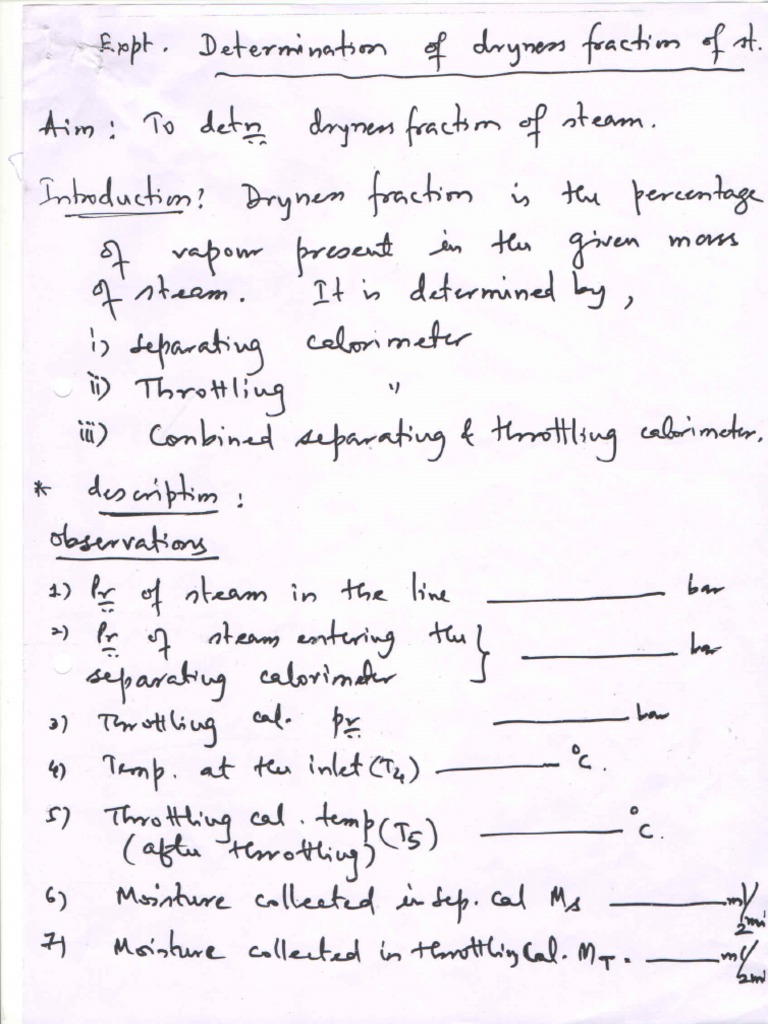 Expt. Determination of dryness fraction of st.
Aim: To detn dryness fraction of steam.
Introduction: Dryness fraction is the percentage
of vapour present in the given mass
of steam. It is determined by,
i) separating calorimeter
ii) Throttling "
iii) Combined separating & throttling calorimeter.
* description:
observations
1) Pr of steam in the line ________ bar
2) Pr of steam entering the } ________ bar
separating calorimeter
3) Throttling cal. pr ________ bar
4) Temp. at the inlet (T4) ________ °C.
5) Throttling cal. temp (T5) ________ °C.
(after throttling)
6) Moisture collected in sep. cal Ms ________ ml/2mi
7) Moisture collected in throttling Cal. MT. ________ ml/2mi